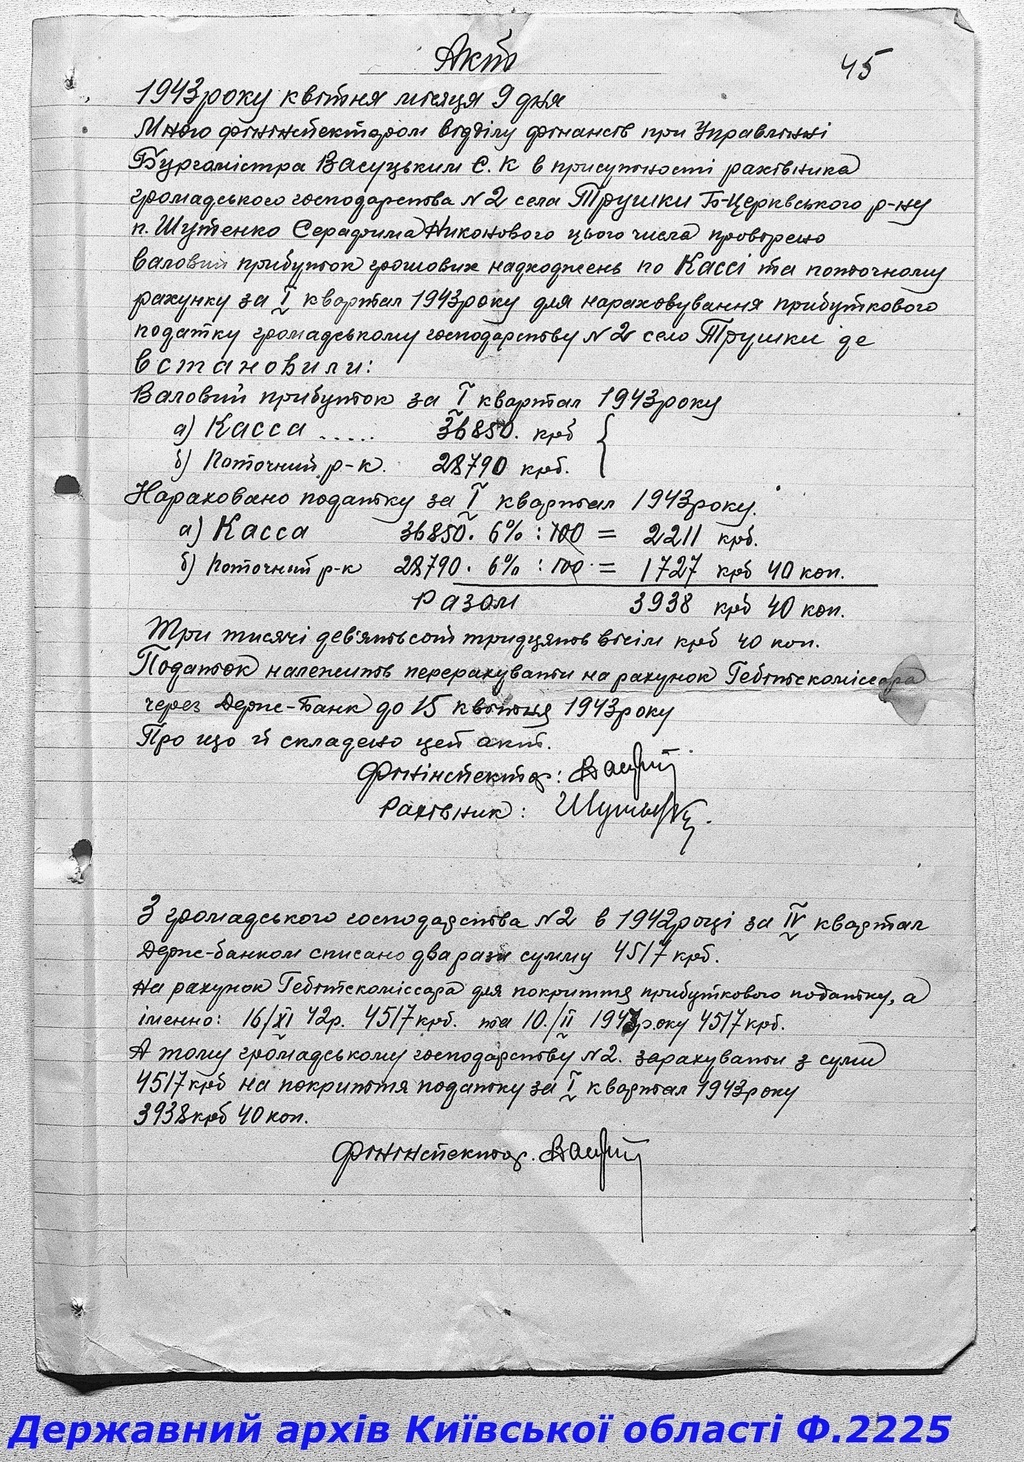 Актъ
45
1943 року квітня місяця 9 дня
Мною фінінспектором відділу фінансів при Управлінні
Бургомістра Васуцьким Є. К в присутності рахівника
громадського господарства №2 села Трушки Б-Церквського р-ну
п. Шутенко Серафима Никонового цього числа проворено
валовий прибуток грошових надходжень по Кассі та поточному
рахунку за I квартал 1943 року для нараховування прибуткового
податку громадському господарству №2 село Трушки де
встановили:
Валовий прибуток за I квартал 1943 року
а) Касса ..... 36850. крб
б) Поточний р-к. 28790 крб.
Нараховано податку за I квартал 1943 року.
а) Касса 36850. 6% : 100 = 2211 крб.
б) Поточний р-к 28790. 6% : 100. = 1727 крб 40 коп.
Разом 3938 крб 40 коп.
Три тисячі дев'ятьсот тридцять вісім крб 40 коп.
Податок належить перерахувати на рахунок Гебітскоміссара
через Держ-Банк до 15 квітня 1943 року
Про що й складено цей акт.
Фінінспектор:
Рахівник:
З громадського господарства №2 в 1942 році за IV квартал
Держ-банком списано два рази сумму 4517 крб.
на рахунок Гебітскоміссара для покриття прибуткового податку, а
іменно: 16/XI 42р. 4517 крб. та 10./II 1943 року 4517 крб.
А тому громадському господарству №2. зарахувати з суми
4517 крб на покриття податку за I квартал 1943 року
3938 крб 40 коп.
Фінінспектор.
Державний архів Київської області Ф.2225